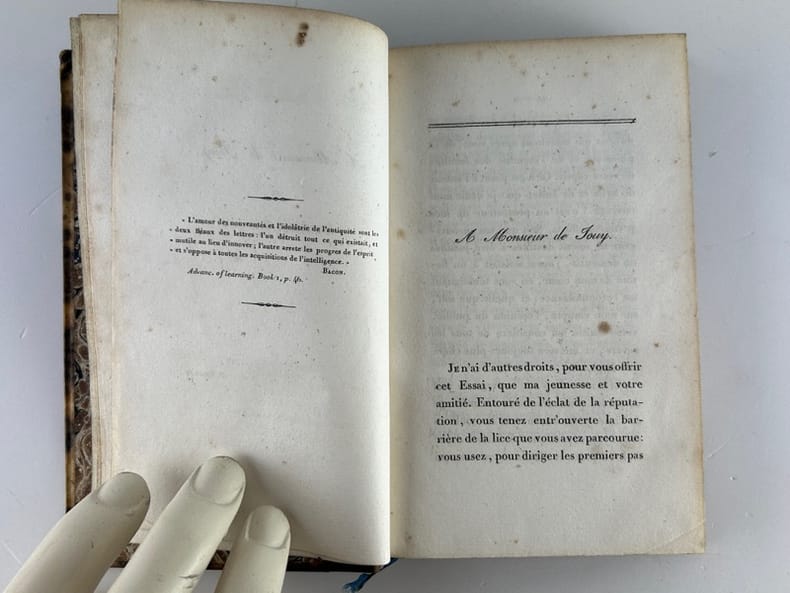 « L'amour des nouveautés et l'idolâtrie de l'antiquité sont les
« deux fléaux des lettres : l'un détruit tout ce qui existait, et
« mutile au lieu d'innover ; l'autre arrete les progres de l'esprit
« et s'oppose à toutes les acquisitions de l'intelligence. »
BACON.
Advanc. of learning. Book 1, p.
A Monsieur de Jouy.
JE n'ai d'autres droits, pour vous offrir
cet Essai, que ma jeunesse et votre
amitié. Entouré de l'éclat de la réputa-
tion, vous tenez entr'ouverte la bar-
rière de la lice que vous avez parcourue :
vous usez, pour diriger les premiers pas